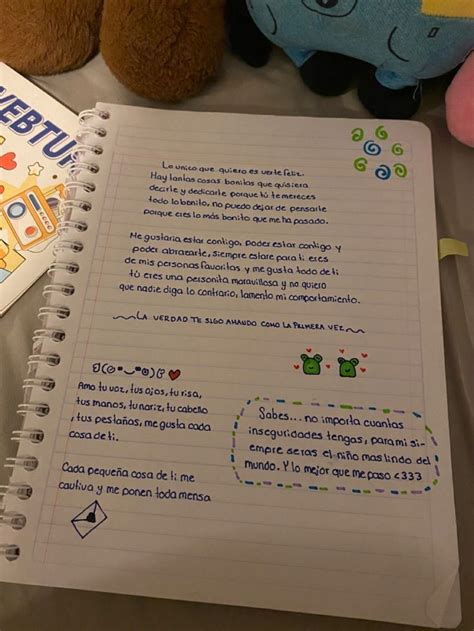 WEBTU
Lo unico que quiero es verte feliz.
Hay tantas cosas bonitas que quisiera
decirte y dedicarte porque tú te mereces
todo lo bonito, no puedo dejar de pensarte
porque eres lo más bonito que me ha pasado.
Me gustaria estar contigo, poder estar contigo y
poder abrazarte, siempre estare para ti eres
de mis personas favoritas y me gusta todo de ti
tú eres una persona maravillosa y no quiero
que nadie diga lo contrario, lamento mi comportamiento.
LA VERDAD TE SIGO AMANDO COMO LA PRIMERA VEZ
Amo tu voz, tus ojos, tu risa,
tus manos, tu nariz, tu cabello
, tus pestañas, me gusta cada
cosa de ti.
Cada pequeña cosa de ti me
cautiva y me ponen toda mensa
Sabes... no importa cuantas
inseguridades tengas, para mi si-
empre seras el niño mas lindo del
mundo. Y lo mejor que me paso <333